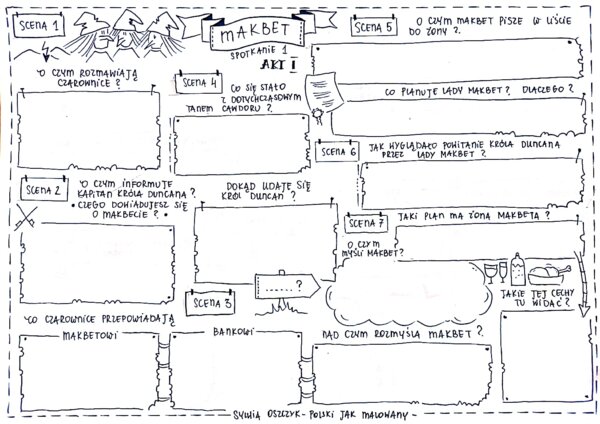 SCENA 1
MAKBET
SPOTKANIE 1
AKT I
O CZYM ROZMAWIAJĄ
CZAROWNICE ?
SCENA 2
O CZYM INFORMUJE
KAPITAN KRÓLA DUNCANA ?
• CZEGO DOWIADUJESZ SIĘ
O MAKBECIE ? •
SCENA 3
CO CZAROWNICE PRZEPOWIADAJĄ
MAKBETOWI
BANKOWI
NAD CZYM ROZMYŚLA MAKBET ?
SCENA 4
CO SIĘ STAŁO
Z DOTYCHCZASOWYM
TANEM CAWDORU ?
DOKĄD UDAJE SIĘ
KRÓL DUNCAN ?
........ ?
SCENA 5
O CZYM MAKBET PISZE W LIŚCIE
DO ŻONY ?
CO PLANUJE LADY MAKBET ? DLACZEGO ?
SCENA 6
JAK WYGLĄDAŁO POWITANIE KRÓLA DUNCANA
PRZEZ LADY MAKBET ?
SCENA 7
JAKI PLAN MA ŻONA MAKBETA ?
O CZYM
MYŚLI MAKBET?
JAKIE JEJ CECHY
TU WIDAĆ ?
SYLWIA OSZCZYK - POLSKI JAK MALOWANY -